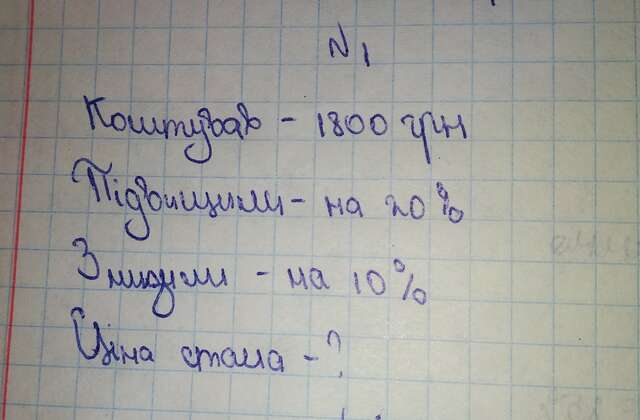 N 1
Коштував - 1800 грн
Підвищили - на 20%
Знизили - на 10%
Ціна стала - ?